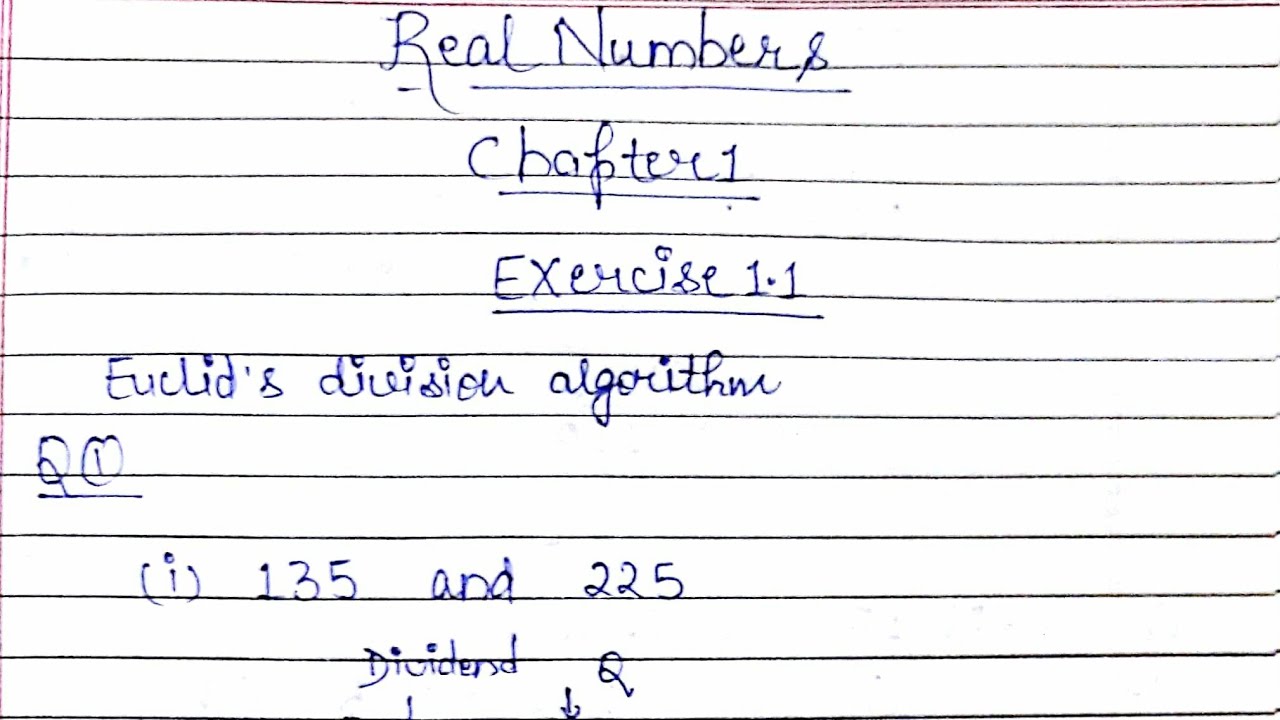 Real Numbers
Chapter 1
Exercise 1.1
Euclid's division algorithm
Q ①
(i) 135 and 225
Dividend Q
↓ ↓